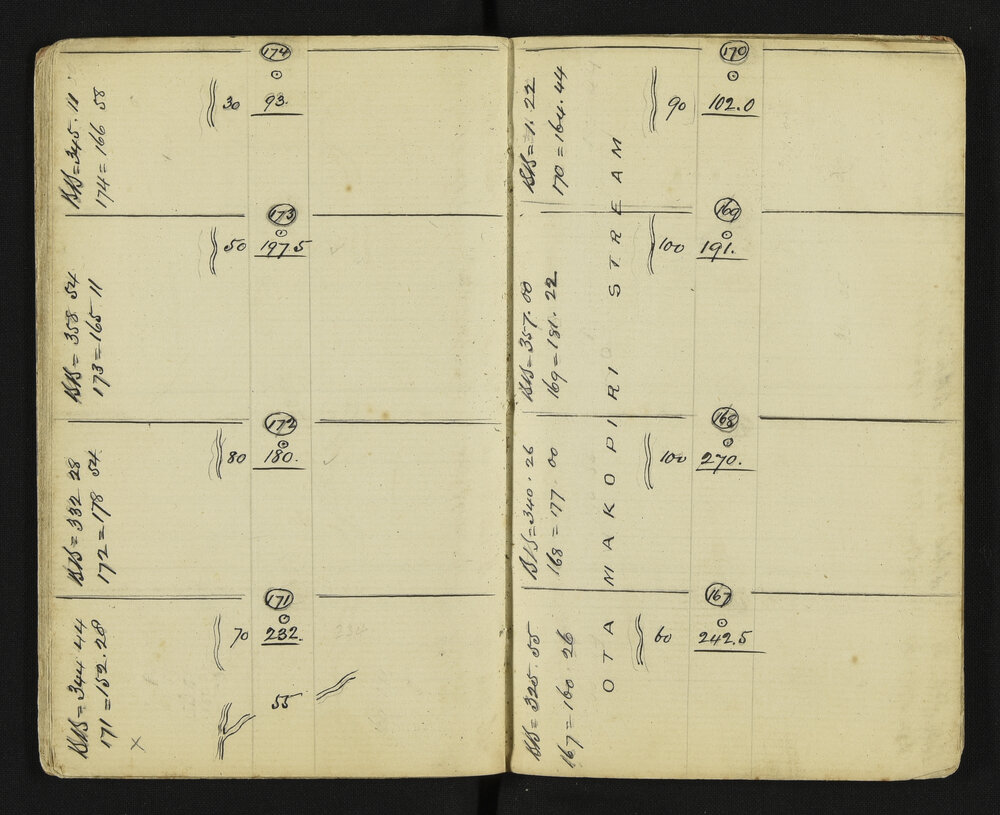 174
30 93.
BS = 345. 11
174 = 166 58
173
50 197.5
BS = 358 54
173 = 165 11
172
80 180.
BS = 332 28
172 = 178 54
171
70 232.
234
55
BS = 344 44
171 = 152. 28
X
170
90 102.0
BS = 1. 22
170 = 164. 44
169
100 191.
BS = 357. 00
169 = 181. 22
168
100 270.
BS = 340. 26
168 = 177 00
167
60 242.5
BS = 325. 55
167 = 160 26
OTAMAKOPIRI STREAM